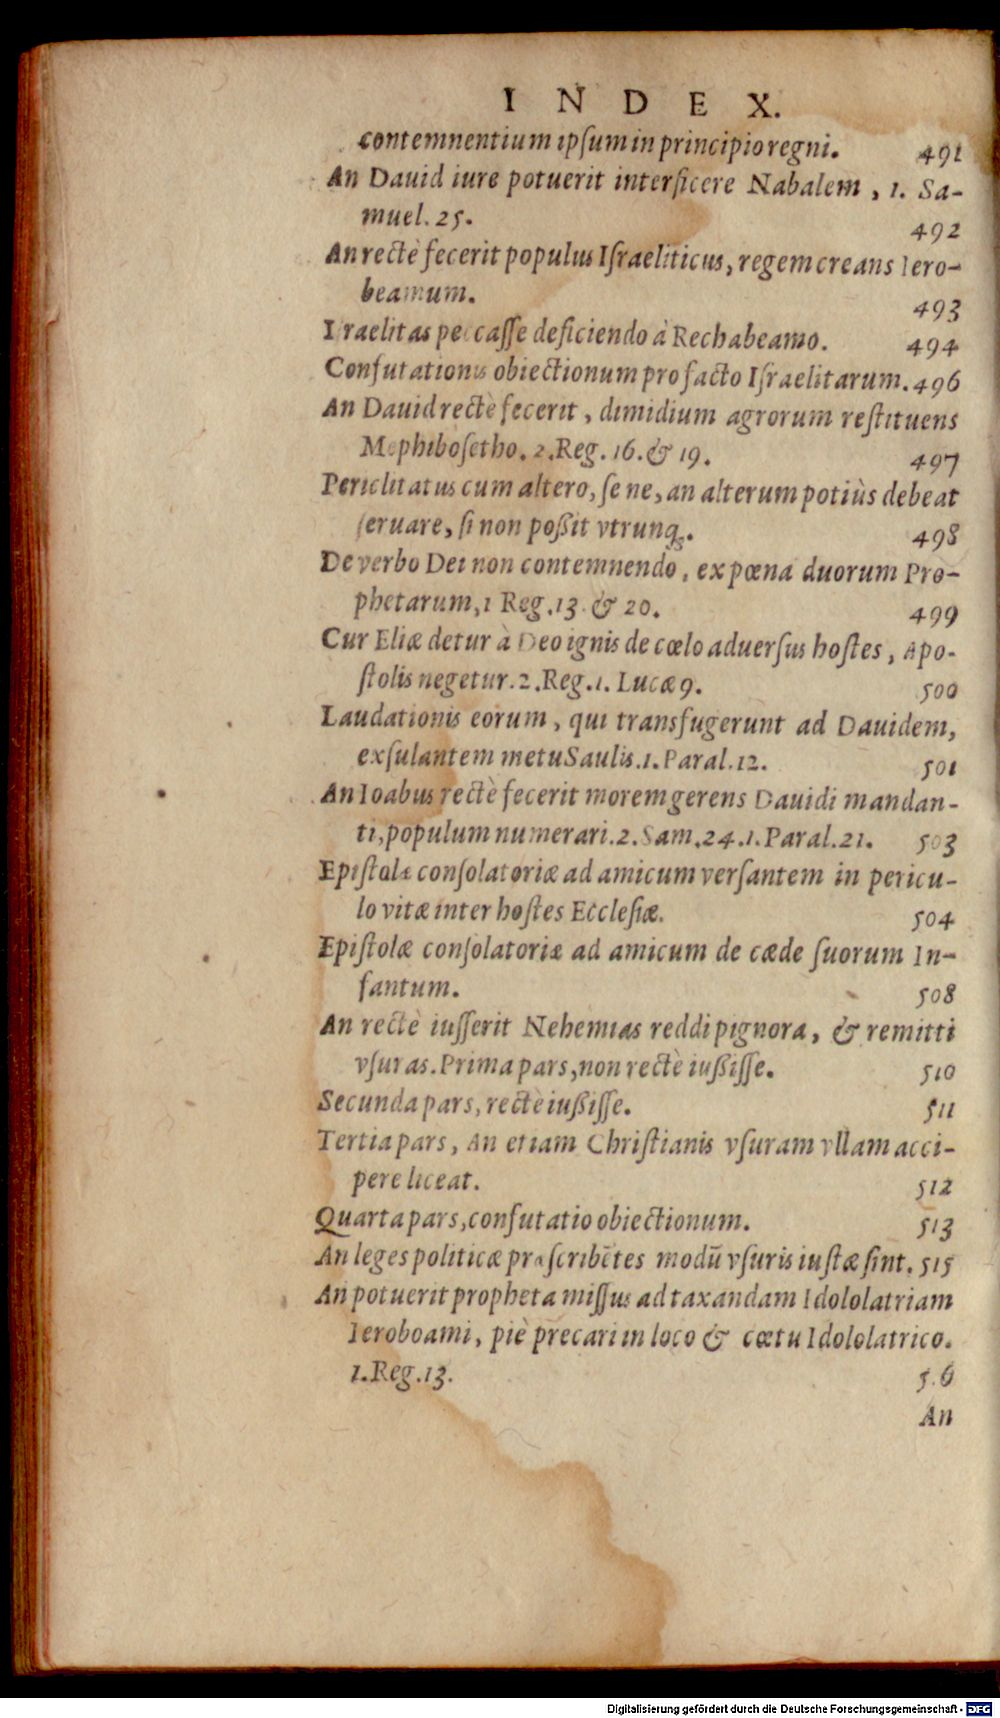 INDEX.
contemnentium ipſum in principio regni. 491
An Dauid iure potuerit interficere Nabalem, 1. Sa-
muel. 25. 492
An rectè fecerit populus Iſraeliticus, regem creans Iero-
beamum. 493
Iſraelitas peccaſſe deficiendo à Rechabeamo. 494
Confutationis obiectionum pro facto Iſraelitarum. 496
An Dauid rectè fecerit, dimidium agrorum reſtituens
Mephiboſetho. 2. Reg. 16. & 19. 497
Periclitatus cum altero, ſe ne, an alterum potiùs debeat
ſeruare, ſi non poßit vtrunq;. 498
De verbo Dei non contemnendo, ex pœna duorum Pro-
phetarum, 1 Reg. 13. & 20. 499
Cur Eliæ detur à Deo ignis de cœlo aduerſus hoſtes, Apo-
ſtolis negetur. 2. Reg. 1. Lucæ 9. 500
Laudationis eorum, qui transfugerunt ad Dauidem,
exſulantem metu Saulis. 1. Paral. 12. 501
An Ioabus rectè fecerit morem gerens Dauidi mandan-
ti, populum numerari. 2. Sam. 24. 1. Paral. 21. 503
Epiſtolæ conſolatoriæ ad amicum verſantem in pericu-
lo vitæ inter hoſtes Eccleſiæ. 504
Epiſtolæ conſolatoriæ ad amicum de cæde ſuorum In-
fantum. 508
An rectè iuſſerit Nehemias reddi pignora, & remitti
vſuras. Prima pars, non rectè iußiſſe. 510
Secunda pars, rectè iußiſſe. 511
Tertia pars, An etiam Chriſtianis vſuram vllam acci-
pere liceat. 512
Quarta pars, confutatio obiectionum. 513
An leges politicæ præſcribẽtes modũ vſuris iuſtæ ſint. 515
An potuerit propheta miſſus ad taxandam Idololatriam
Ieroboami, piè precari in loco & cœtu Idololatrico.
1. Reg. 13.
An
Digitalisierung gefördert durch die Deutsche Forschungsgemeinschaft - DFG